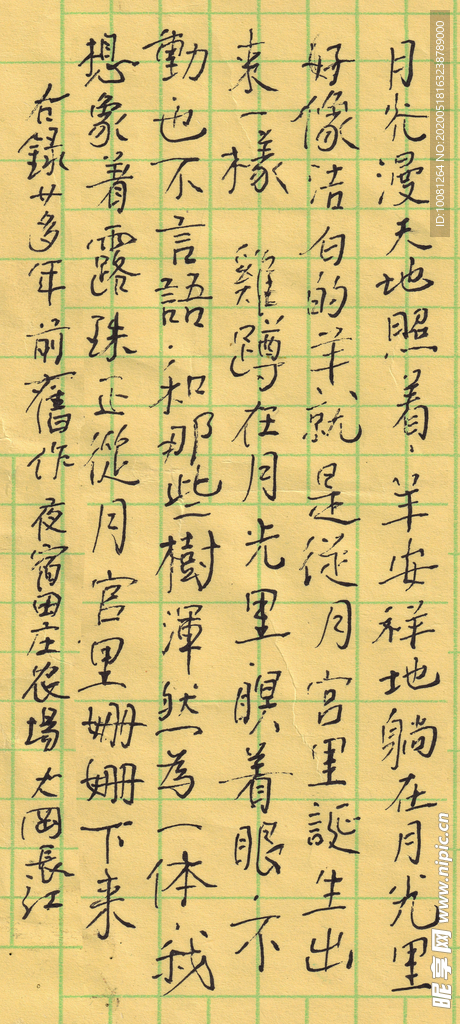 月光漫天地照着，羊安祥地躺在月光里
好像洁白的羊就是從月宫里誕生出
来一樣 雞蹲在月光里，瞑着眼，不
動也不言語，和那些樹渾然為一体，我
想象着露珠正從月宫里姗姗下来
右録廿多年前舊作 夜宿田庄农場 大岡長江
昵享网 www.nipic.cn
ID:10081264 NO:20200518163238789000